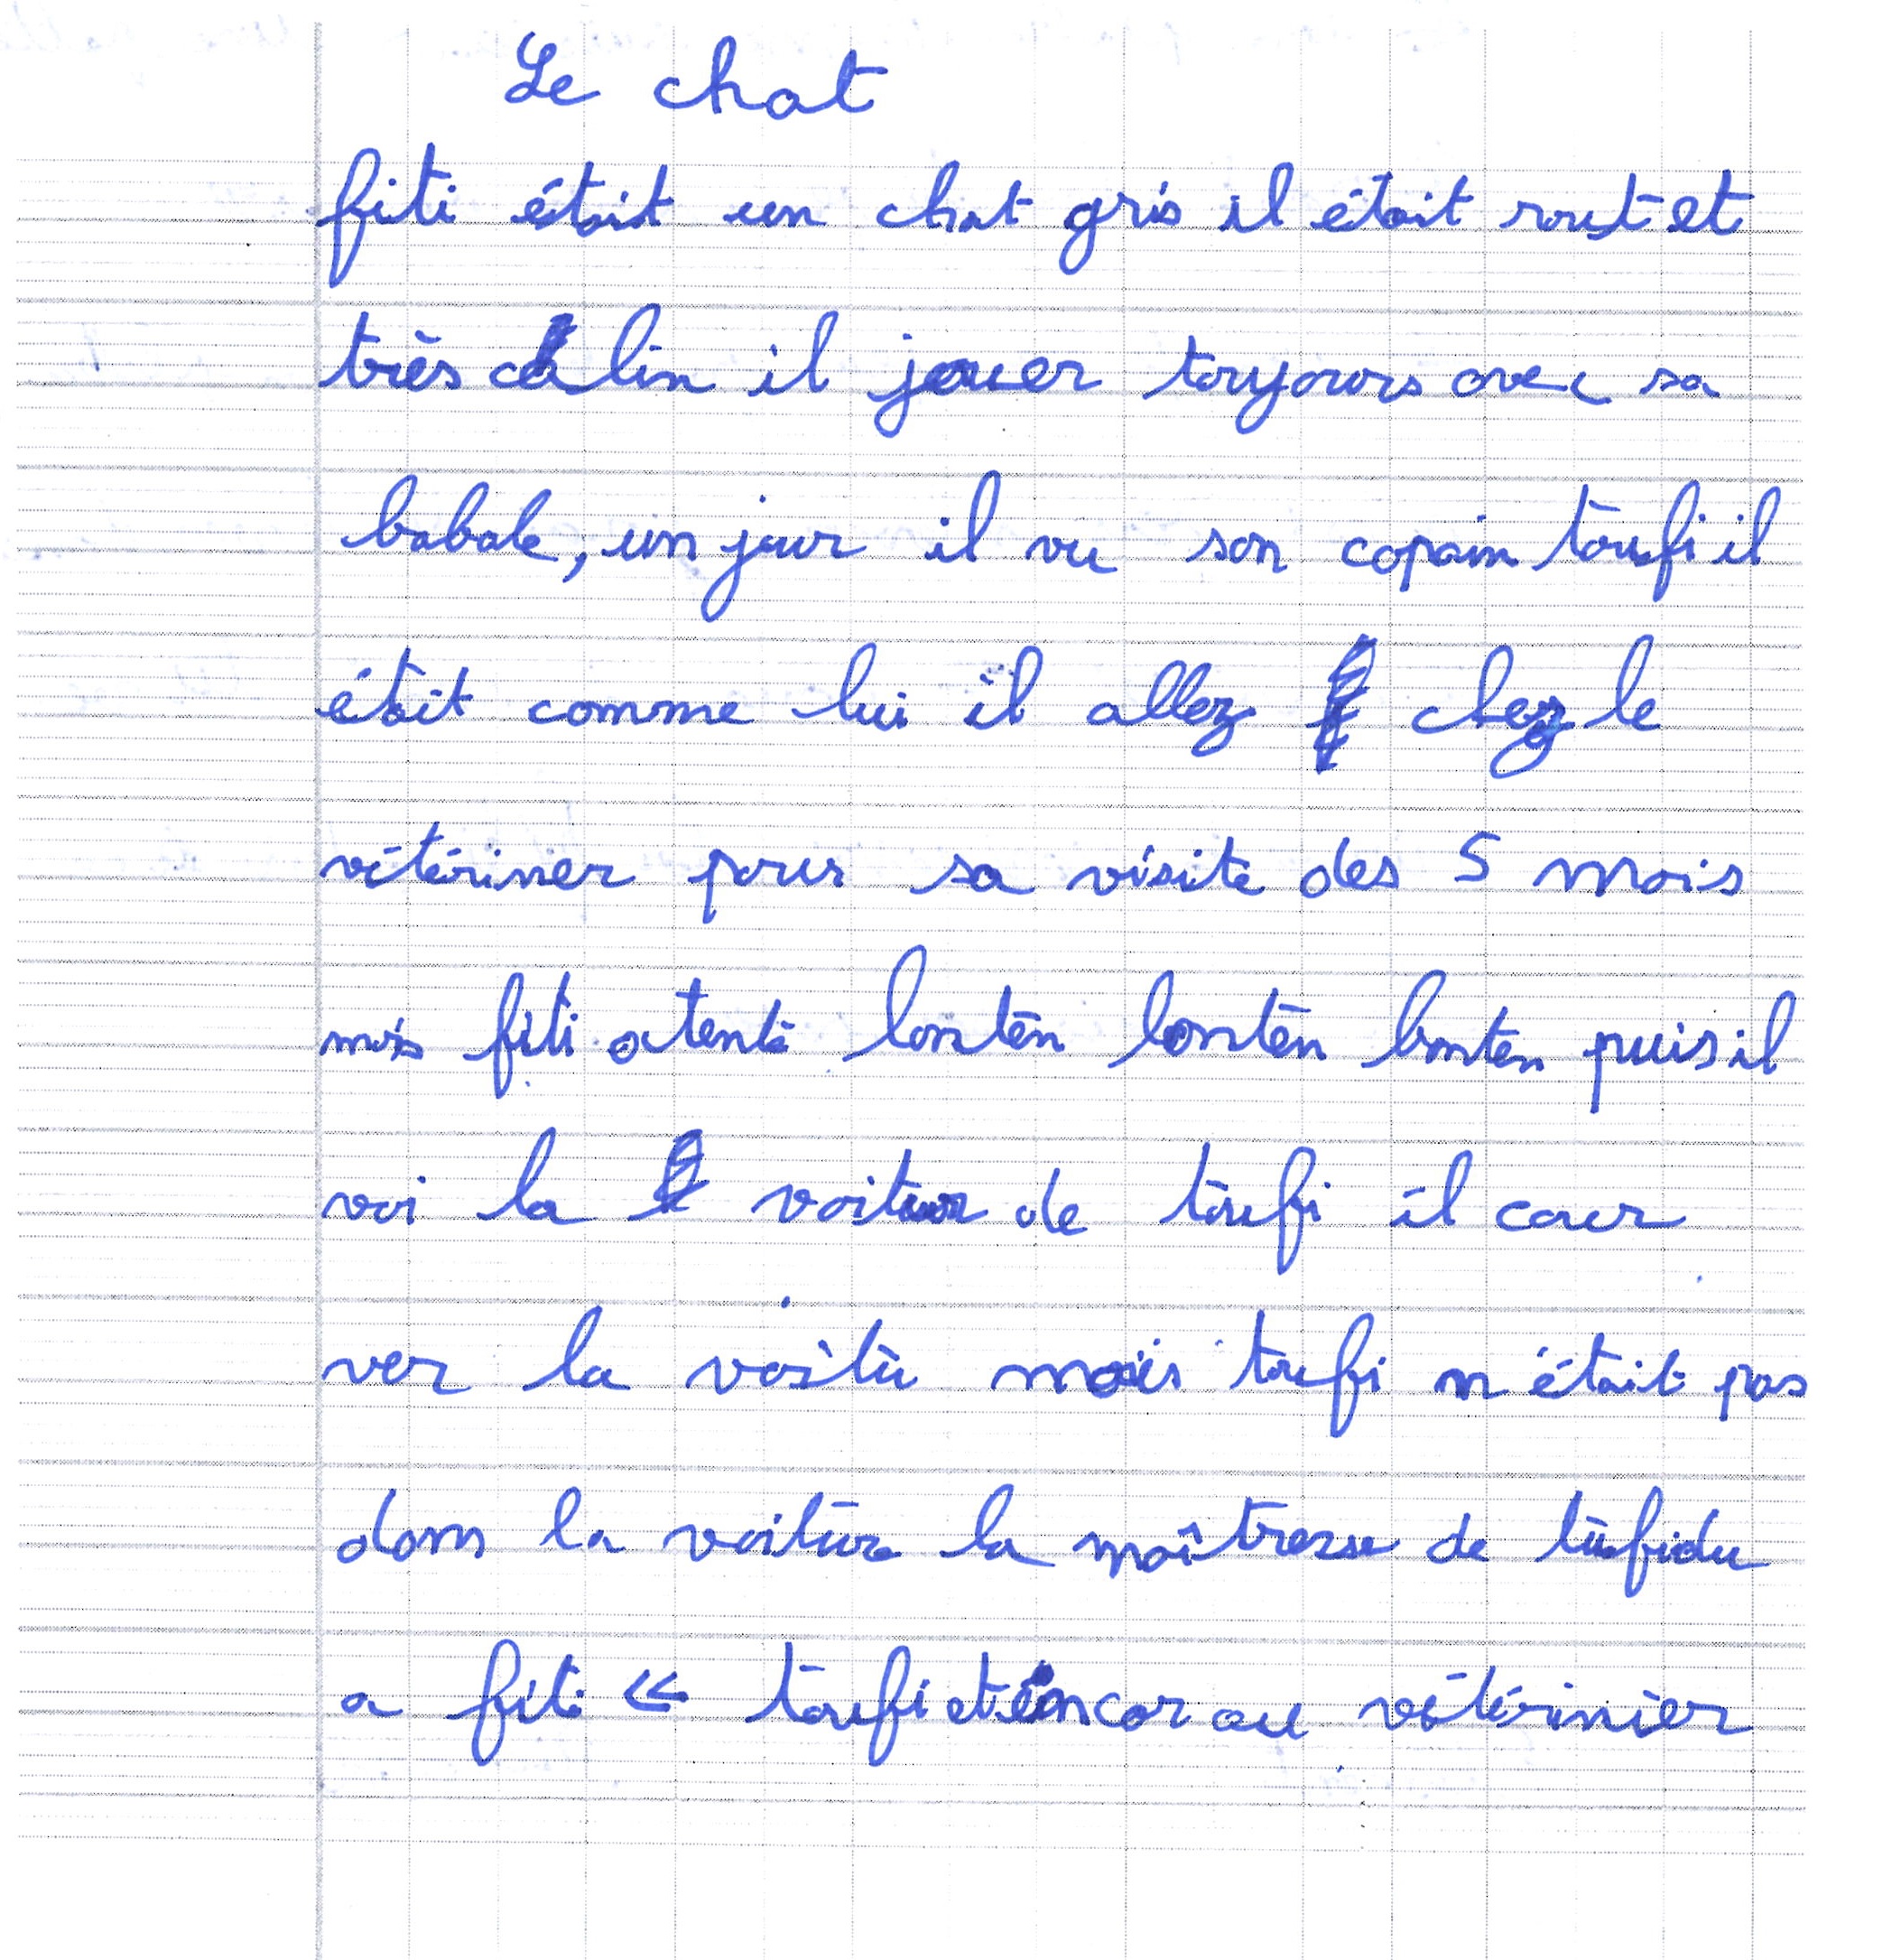 Le chat
fiti était un chat gris il était rout et
très calin il jouer toujours avec sa
babale, un jour il vu son copain toufi il
était comme lui il allez chez le
vétériner pour sa visite des 5 mois
mais fiti atentè lontèn lontèn lonten puis il
voi la voitur de toufi il cour
ver la voitu mais toufi n'était pas
dans la voiture la maîtresse de tufi du
a fiti « toufi et encor au vétérinièr